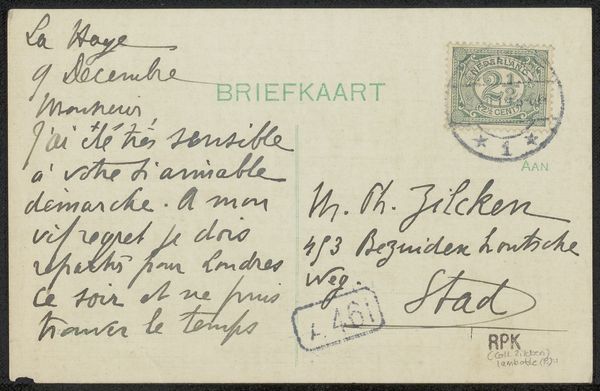 La Haye
9 Décembre
Monsieur
J'ai été très sensible
à votre si aimable
démarche. A mon
vif regret je dois
repartir pour Londres
ce soir et ne puis
trouver le temps
BRIEFKAART
NEDERLAND
2½
CENT
1
AAN
M. Ph. Zilcken
493 Bezuidenhoutsche
Weg.
Stad
A. 461
RPK
(Coll. Zilcken)